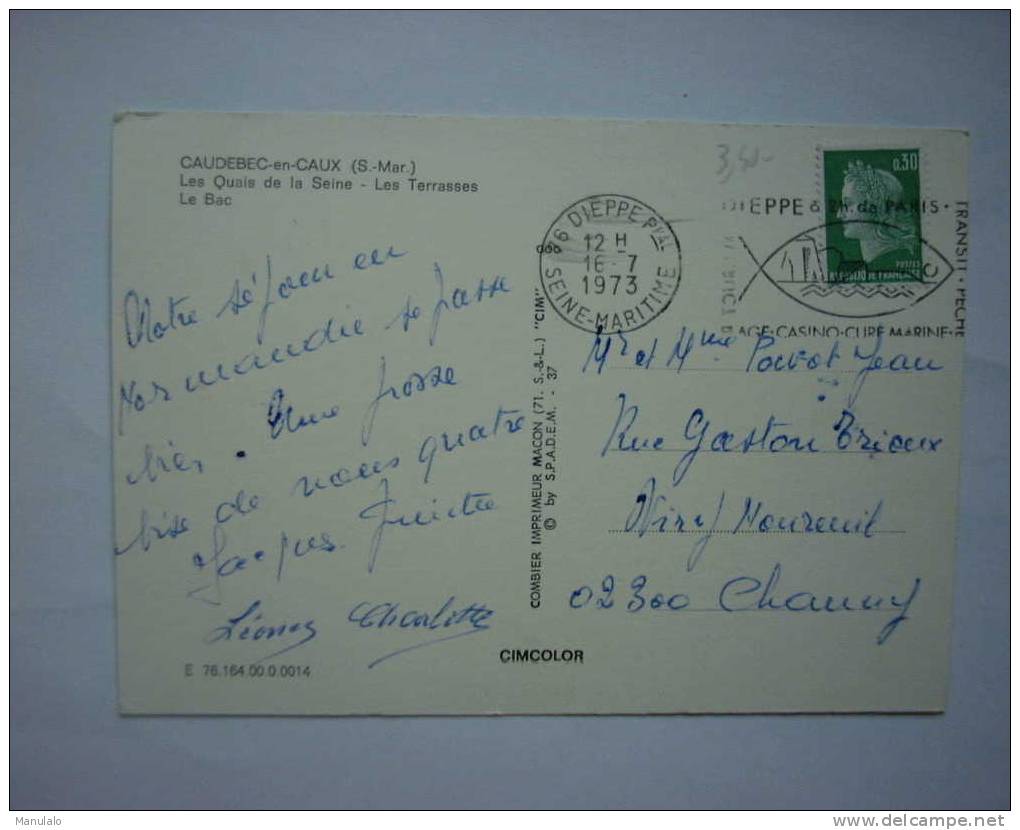 CAUDEBEC-en-CAUX (S.-Mar.)
Les Quais de la Seine - Les Terrasses
Le Bac
Notre séjour en
Normandie se passe
bien. Une grosse
bise de nous quatre
Jacques
Charlotte
E 76.164.00.0.0014
COMBIER IMPRIMEUR MACON (71. S.-&-L.) "CIM"
© by S.P.A.D.E.M. - 37
CIMCOLOR
3,50-
76 DIEPPE Pal
12 H
16-7
1973
SEINE-MARITIME
0.30
POSTES
REPUBLIQUE FRANCAISE
DIEPPE à 2h. de PARIS •
TRANSIT • PECHE
AGE • CASINO • CURE MARINE •
Mr et Mme Jean
Rue Gaston
Viry Noureuil
02300 Chauny
Manulalo
www.delcampe.net